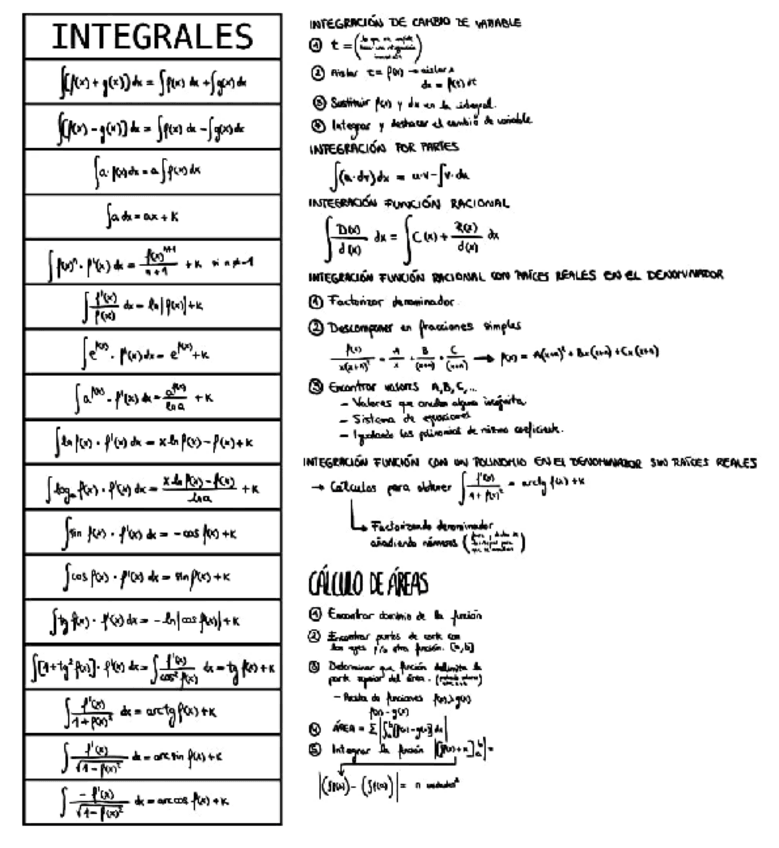 INTEGRALES
∫(f(x) + g(x)) dx = ∫f(x) dx + ∫g(x) dx
∫[f(x) - g(x)] dx = ∫f(x) dx - ∫g(x) dx
∫a · f(x) dx = a ∫f(x) dx
∫a dx = ax + K
∫f(x)ⁿ · f'(x) dx = f(x)ⁿ⁺¹ / n+1 + K si n ≠ -1
∫f'(x)/f(x) dx = ln|f(x)| + K
∫e^f(x) · f'(x) dx = e^f(x) + K
∫a^f(x) · f'(x) dx = a^f(x)/ln a + K
∫ln f(x) · f'(x) dx = x ln f(x) - f(x) + K
∫logₐ f(x) · f'(x) dx = x ln f(x) - f(x) / ln a + K
∫sin f(x) · f'(x) dx = - cos f(x) + K
∫cos f(x) · f'(x) dx = sin f(x) + K
∫tg f(x) · f'(x) dx = - ln|cos f(x)| + K
∫[1 + tg² f(x)] · f'(x) dx = ∫f'(x)/cos² f(x) dx = tg f(x) + K
∫f'(x)/1 + f(x)² dx = arctg f(x) + K
∫f'(x)/√1 - f(x)² dx = arcsin f(x) + K
∫-f'(x)/√1 - f(x)² dx = arccos f(x) + K
INTEGRACIÓN DE CAMBIO DE VARIABLE
① t =
② Aislar t = f(x) → aislar x
dx = f(t) dt
③ Sustituir f(x) y dx en la integral.
④ Integrar y deshacer el cambio de variable
INTEGRACIÓN POR PARTES
∫(u · dv) dx = u·v - ∫v · du
INTEGRACIÓN FUNCIÓN RACIONAL
∫D(x)/d(x) dx = ∫C(x) + R(x)/d(x) dx
INTEGRACIÓN FUNCIÓN RACIONAL CON RAÍCES REALES EN EL DENOMINADOR
① Factorizar denominador.
② Descomponer en fracciones simples
f(x)/x(x+n)² = A/x + B/(x+n) + C/(x+n) → f(x) = A(x+n)² + Bx(x+n) + Cx(x+n)
③ Encontrar valores A, B, C, ...
- Valores que anulen alguna incógnita
- Sistema de ecuaciones
- Igualando los polinomios de mismo coeficiente.
INTEGRACIÓN FUNCIÓN CON UN POLINOMIO EN EL DENOMINADOR SIN RAÍCES REALES
→ Cálculos para obtener ∫f'(x)/1 + f(x)² = arctg f(x) + K
Factorizando denominador
añadiendo números
CÁLCULO DE ÁREAS
① Encontrar dominio de la función
② Encontrar puntos de corte con
los ejes y/o otra función. [a, b]
③ Determinar que función delimita la
parte superior del área.
- Resta de funciones f(x) > g(x)
f(x) - g(x)
④ ÁREA = Σ|∫ₐᵇ [f(x) - g(x)] dx|
⑤ Integrar la función
|(∫f(b)) - (∫f(a))| = n unidades²